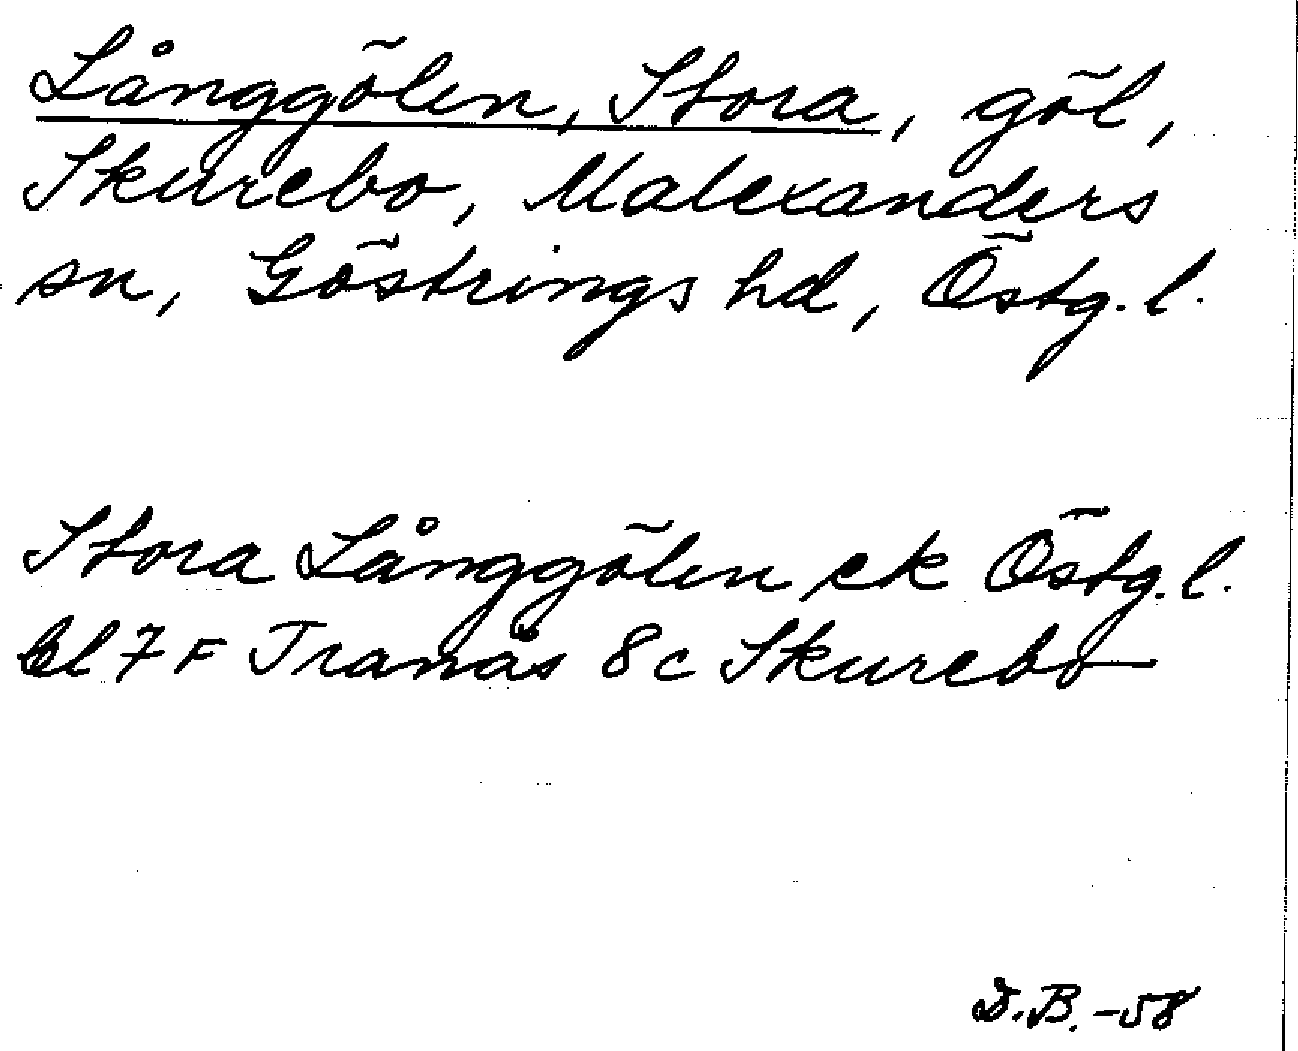 Långgölen, Stora, göl,
Skurebo, Malexanders
sn, Göstrings hd, Östg. l.
Stora Långgölen ek Östg. l.
bl 7 F Tranås 8c Skurebo
D.B. -58